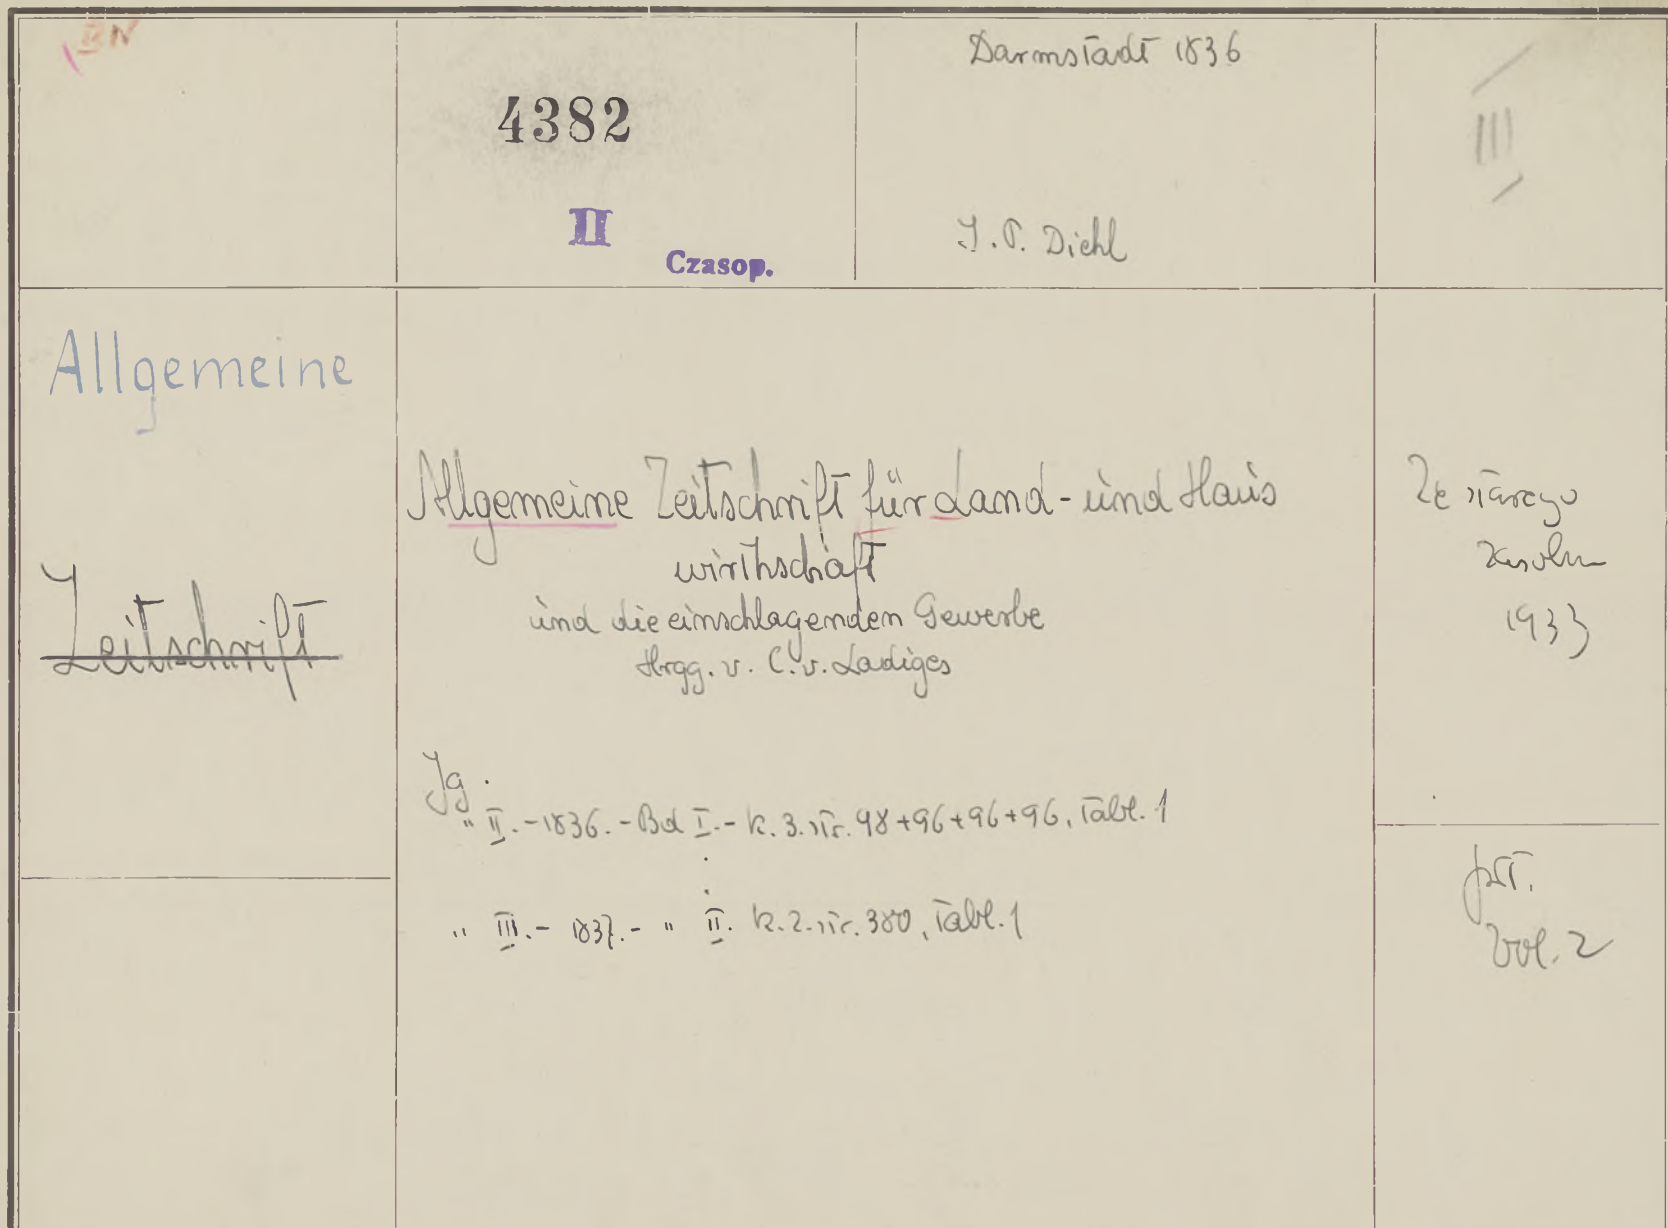 BN
4382
II
Czasop.
Darmstadt 1836
J. P. Diehl
III
Allgemeine
Zeitschrift
Allgemeine Zeitschrift für Land- und Haus
wirthschaft
und die einschlagenden Gewerbe
Hrgg. v. C. v. Ladiges
Jg.
" II. - 1836. - Bd I. - k. 3. str. 98+96+96+96, tabl. 1
" III. - 1837. - " II. k. 2. str. 380, tabl. 1
Ze starego
zasobu
1933
Vol. 2